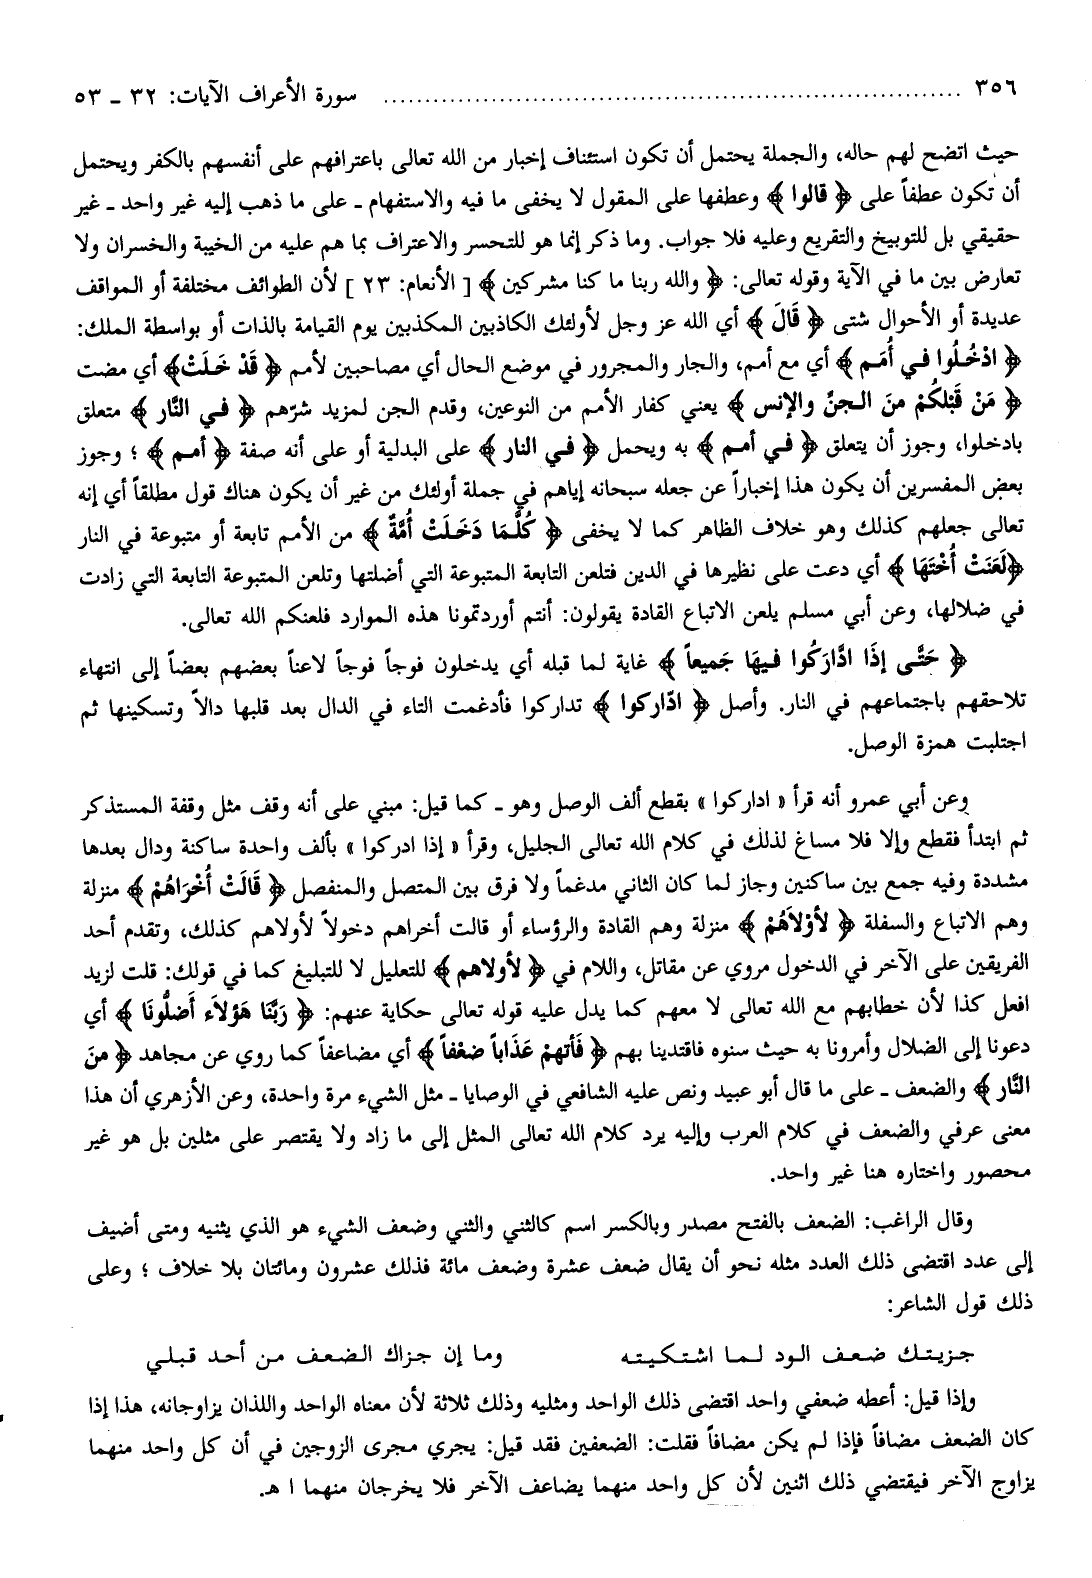 ٣٥٦ ........................................................................ سورة الأعراف الآيات: ٣٢ ـ ٥٣
حيث اتضح لهم حاله، والجملة يحتمل أن تكون استئناف إخبار من الله تعالى باعترافهم على أنفسهم بالكفر ويحتمل
أن تكون عطفاً على ﴿ قالوا ﴾ وعطفها على المقول لا يخفى ما فيه والاستفهام ـ على ما ذهب إليه غير واحد ـ غير
حقيقي بل للتوبيخ والتقريع وعليه فلا جواب. وما ذكر إنما هو للتحسر والاعتراف بما هم عليه من الخيبة والخسران ولا
تعارض بين ما في الآية وقوله تعالى: ﴿ والله ربنا ما كنا مشركين ﴾ [ الأنعام: ٢٣ ] لأن الطوائف مختلفة أو المواقف
عديدة أو الأحوال شتى ﴿ قَالَ ﴾ أي الله عز وجل لأولئك الكاذبين المكذبين يوم القيامة بالذات أو بواسطة الملك:
﴿ ادْخُلُوا في أُمَم ﴾ أي مع أمم، والجار والمجرور في موضع الحال أي مصاحبين لأمم ﴿ قَدْ خَلَتْ﴾ أي مضت
﴿ مَنْ قَبْلكُمْ منَ الـجنِّ والإنس ﴾ يعني كفار الأمم من النوعين، وقدم الجن لمزيد شرّهم ﴿ في النَّار ﴾ متعلق
بادخلوا، وجوز أن يتعلق ﴿ في أمم ﴾ به ويحمل ﴿ في النار ﴾ على البدلية أو على أنه صفة ﴿ أمم ﴾ ؛ وجوز
بعض المفسرين أن يكون هذا إخباراً عن جعله سبحانه إياهم في جملة أولئك من غير أن يكون هناك قول مطلقاً أي إنه
تعالى جعلهم كذلك وهو خلاف الظاهر كما لا يخفى ﴿ كُلَّمَا دَخَلَتْ أُمَّةٌ ﴾ من الأمم تابعة أو متبوعة في النار
﴿لَعَنَتْ أُخْتَهَا ﴾ أي دعت على نظيرها في الدين فتلعن التابعة المتبوعة التي أضلتها وتلعن المتبوعة التابعة التي زادت
في ضلالها، وعن أبي مسلم يلعن الاتباع القادة يقولون: أنتم أوردتمونا هذه الموارد فلعنكم الله تعالى.
﴿ حَتَّى إذَا ادَّارَكُوا فيهَا جَميعاً ﴾ غاية لما قبله أي يدخلون فوجاً فوجاً لاعناً بعضهم بعضاً إلى انتهاء
تلاحقهم باجتماعهم في النار. وأصل ﴿ ادّاركوا ﴾ تداركوا فأدغمت التاء في الدال بعد قلبها دالاً وتسكينها ثم
اجتلبت همزة الوصل.
وعن أبي عمرو أنه قرأ « اداركوا » بقطع ألف الوصل وهو ـ كما قيل: مبني على أنه وقف مثل وقفة المستذكر
ثم ابتدأ فقطع وإلا فلا مساغ لذلك في كلام الله تعالى الجليل، وقرأ « إذا ادركوا » بألف واحدة ساكنة ودال بعدها
مشددة وفيه جمع بين ساكنين وجاز لما كان الثاني مدغماً ولا فرق بين المتصل والمنفصل ﴿ قَالَتْ أُخْرَاهُمْ ﴾ منزلة
وهم الاتباع والسفلة ﴿ لأوْلاَهُمْ ﴾ منزلة وهم القادة والرؤساء أو قالت أخراهم دخولاً لأولاهم كذلك، وتقدم أحد
الفريقين على الآخر في الدخول مروي عن مقاتل، واللام في ﴿ لأولاهم ﴾ للتعليل لا للتبليغ كما في قولك: قلت لزيد
افعل كذا لأن خطابهم مع الله تعالى لا معهم كما يدل عليه قوله تعالى حكاية عنهم: ﴿ رَبَّنَا هَؤلاَء أَضلُّونَا ﴾ أي
دعونا إلى الضلال وأمرونا به حيث سنوه فاقتدينا بهم ﴿ فَأتهمْ عَذَاباً ضعْفاً ﴾ أي مضاعفاً كما روي عن مجاهد ﴿ منَ
النَّار ﴾ والضعف ـ على ما قال أبو عبيد ونص عليه الشافعي في الوصايا ـ مثل الشيء مرة واحدة، وعن الأزهري أن هذا
معنى عرفي والضعف في كلام العرب وإليه يرد كلام الله تعالى المثل إلى ما زاد ولا يقتصر على مثلين بل هو غير
محصور واختاره هنا غير واحد.
وقال الراغب: الضعف بالفتح مصدر وبالكسر اسم كالثني والثني وضعف الشيء هو الذي يثنيه ومتى أضيف
إلى عدد اقتضى ذلك العدد مثله نحو أن يقال ضعف عشرة وضعف مائة فذلك عشرون ومائتان بلا خلاف ؛ وعلى
ذلك قول الشاعر:
جـزيتـك ضـعـف الـود لـمـا اشـتـكـيتـه وما إن جـزاك الـضـعـف مـن أحـد قـبـلـي
وإذا قيل: أعطه ضعفي واحد اقتضى ذلك الواحد ومثليه وذلك ثلاثة لأن معناه الواحد واللذان يزاوجانه، هذا إذا
كان الضعف مضافاً فإذا لم يكن مضافاً فقلت: الضعفين فقد قيل: يجري مجرى الزوجين في أن كل واحد منهما
يزاوج الآخر فيقتضي ذلك اثنين لأن كل واحد منهما يضاعف الآخر فلا يخرجان منهما ا هـ.